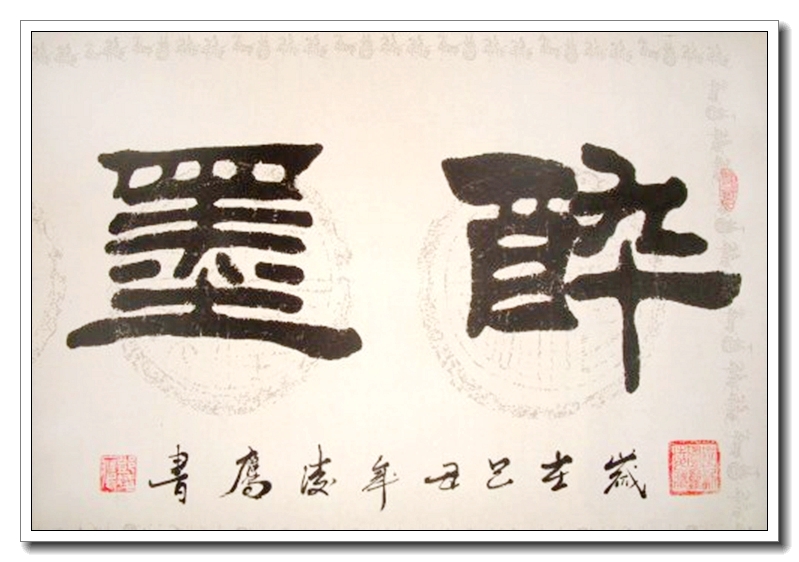 醉墨
歲在己丑年凌鷹書